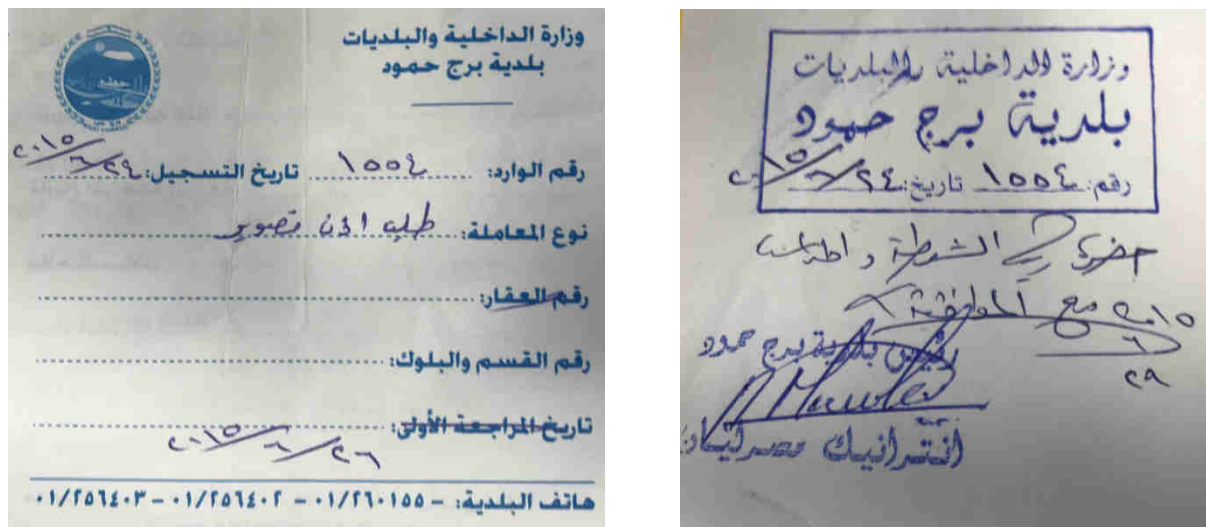 وزارة الداخلية والبلديات
بلدية برج حمود
رقم الوارد: ١٥٥٤ تاريخ التسجيل: ٢٤/٦/٢٠١٥
نوع المعاملة: طلب اذن تصوير
رقم العقار:
رقم القسم والبلوك:
تاريخ المراجعة الأولى:
٢٦/٦/٢٠١٥
هاتف البلدية: - ٠١/٢٦٠١٥٥ - ٠١/٢٥٦٤٠٢ - ٠١/٢٥٦٤٠٣
وزارة الداخلية والبلديات
بلدية برج حمود
رقم: ١٥٥٤ تاريخ: ٢٤/٦/٢٠١٥
حضرة الشرطة و
مع الموافقة
٢٠١٥
٦
٢٩
رئيس بلدية برج حمود
انترانيك مصرليان